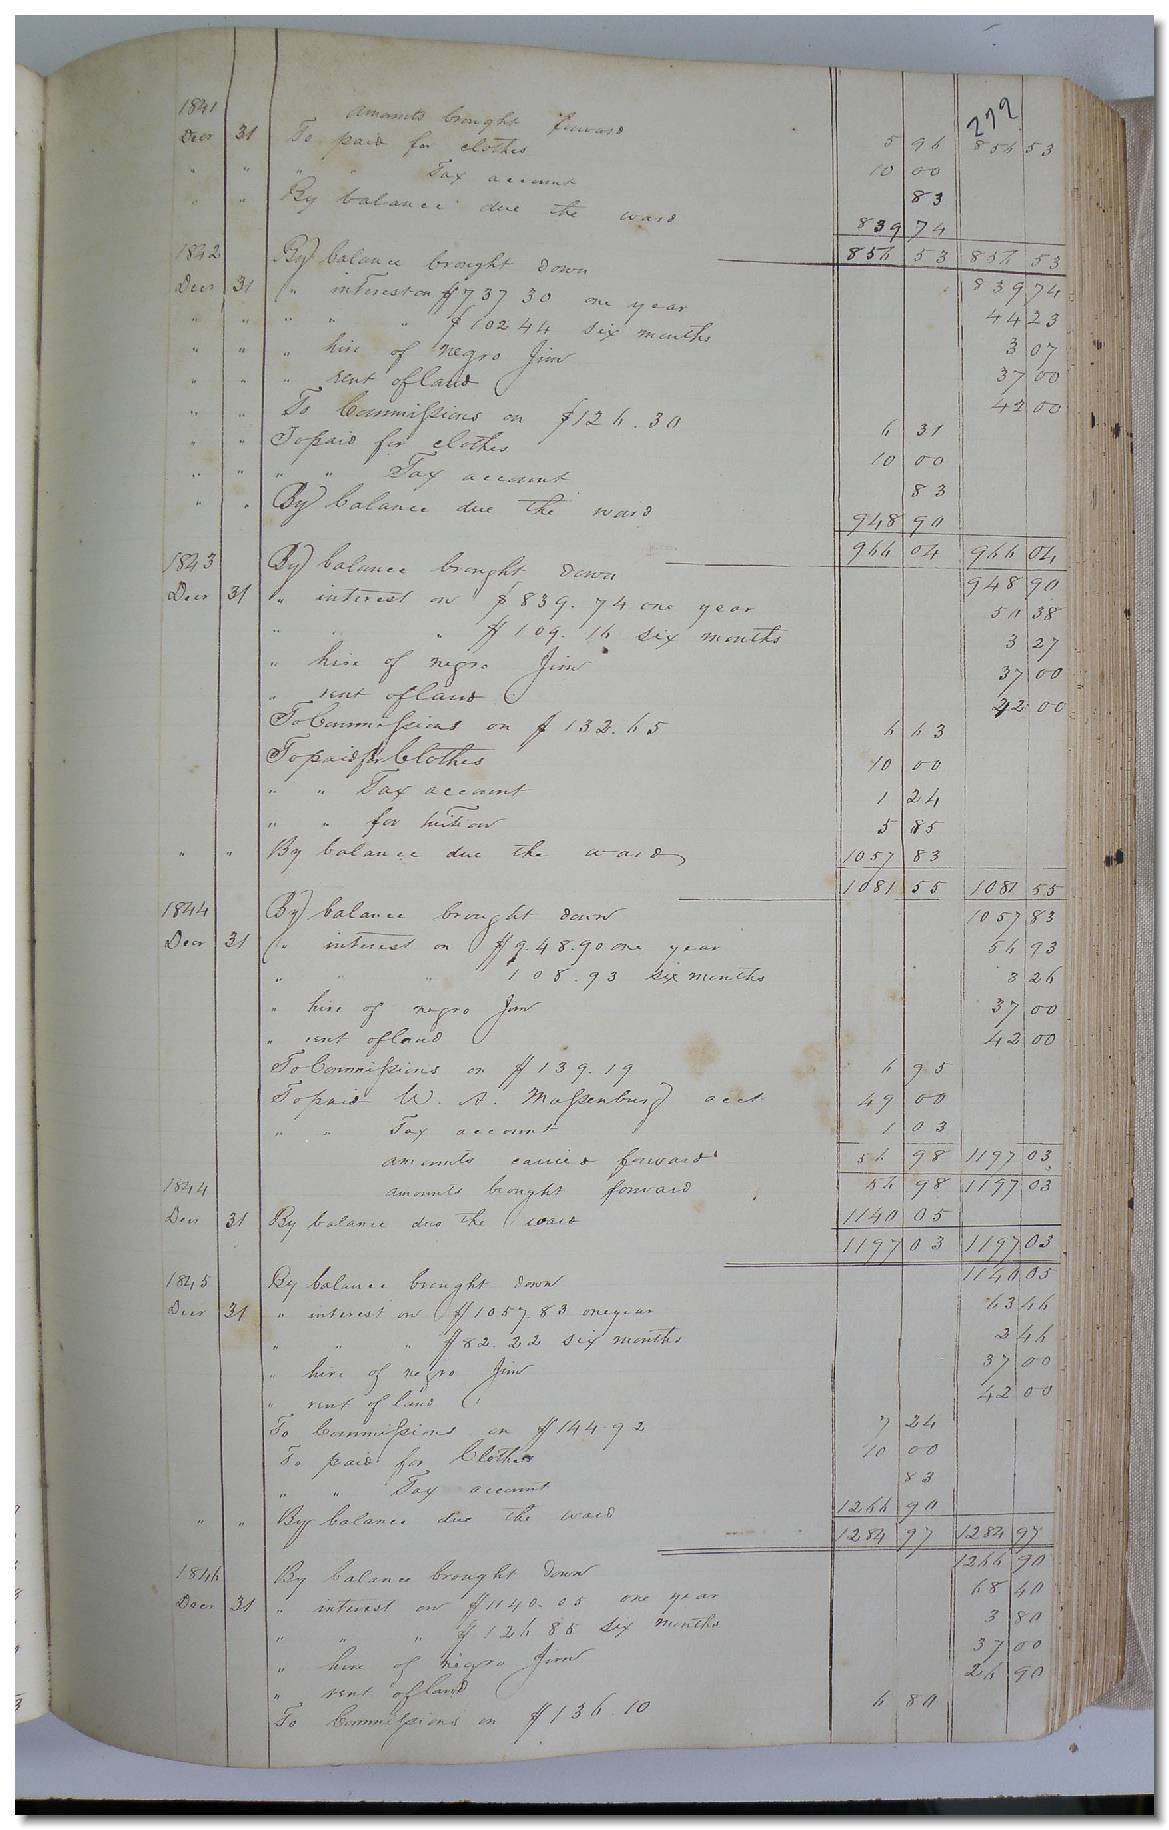 279
1841 amounts brought forward 5 96 856 53
Decr 31 To paid for clothes 10 00
" " " " Tax account 83
" " By balance due the ward 839 74
856 53 856 53
1842 By balance brought down 839 74
Decr 31 " interest on $737 30 one year 44 23
" " " " " $102 44 six months 3 07
" " " hire of negro Jim 37 00
" " " rent of land 42 00
" " To Commissions on $126.30 6 31
" " To paid for clothes 10 00
" " " " Tax account 83
" " By balance due the ward 948 90
966 04 966 04
1843 By balance brought down 948 90
Decr 31 " interest on $839.74 one year 50 38
" " " $109.16 six months 3 27
" hire of negro Jim 37 00
" rent of land 42 00
To Commissions on $132.65 6 63
To paid for Clothes 10 00
" " Tax account 1 24
" " for tuition 5 85
" " By balance due the ward 1057 83
1081 55 1081 55
1844 By balance brought down 1057 83
Decr 31 " interest on $948.90 one year 56 93
" " " 108.93 six months 3 26
" hire of negro Jim 37 00
" rent of land 42 00
To Commissions on $139.19 6 95
To paid W. A. Massenburg acct 49 00
" " Tax account 1 03
amounts carried forward 56 98 1197 03
1844 amounts brought forward 56 98 1197 03
Decr 31 By balance due the ward 1140 05
1197 03 1197 03
1845 By balance brought down 1140 05
Decr 31 " interest on $1057 83 one year 63 46
" " " $82.22 six months 2 46
" hire of negro Jim 37 00
" rent of land 42 00
To Commissions on $144.92 7 24
To paid for Clothes 10 00
" " Tax account 83
" " By balance due the ward 1266 90
1284 97 1284 97
1846 By balance brought down 1266 90
Decr 31 " interest on $1140.05 one year 68 40
" " " $126 85 six months 3 80
" hire of negro Jim 37 00
" rent of land 26 90
To Commissions on $136.10 6 80